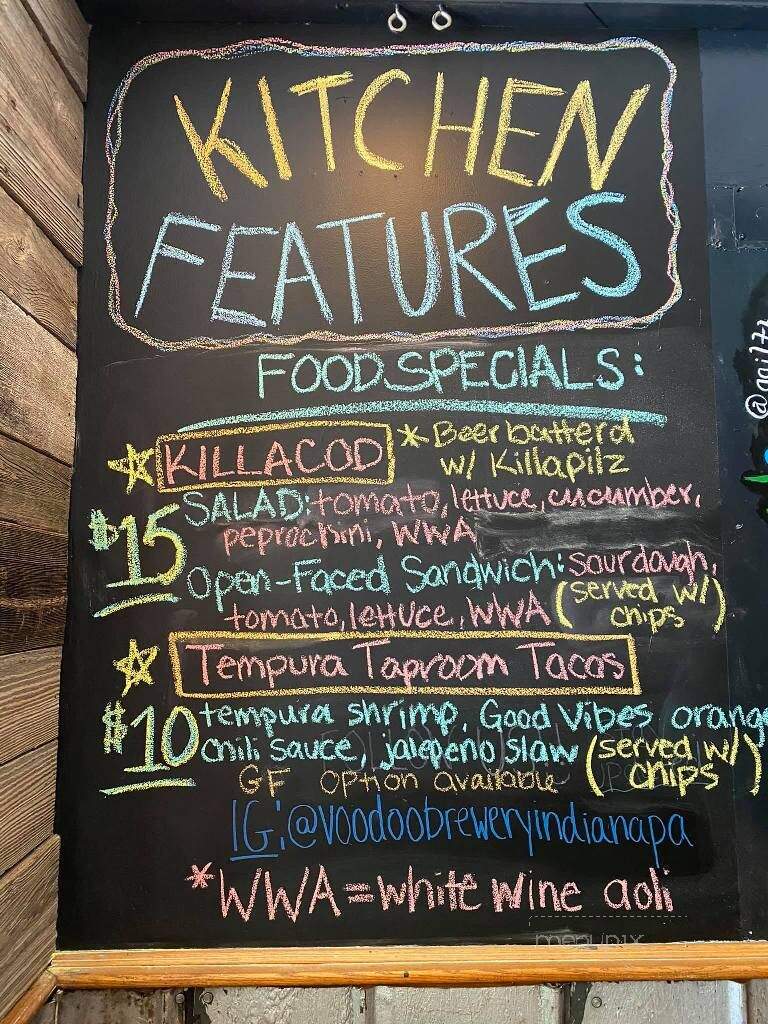 KITCHEN
FEATURES
FOOD SPECIALS:
KILLACOD
*Beer batterd
w/ Killapilz
$15
SALAD: tomato, lettuce, cucumber,
peprochini, WWA
Open-Faced Sandwich: sourdough,
tomato, lettuce, WWA (served w/ chips)
Tempura Taproom Tacos
$10
tempura shrimp, Good Vibes orange
chili sauce, jalepeño slaw (served w/ chips)
GF option available
IG:@voodoobreweryindianapa
*WWA=white wine aoli
menupix